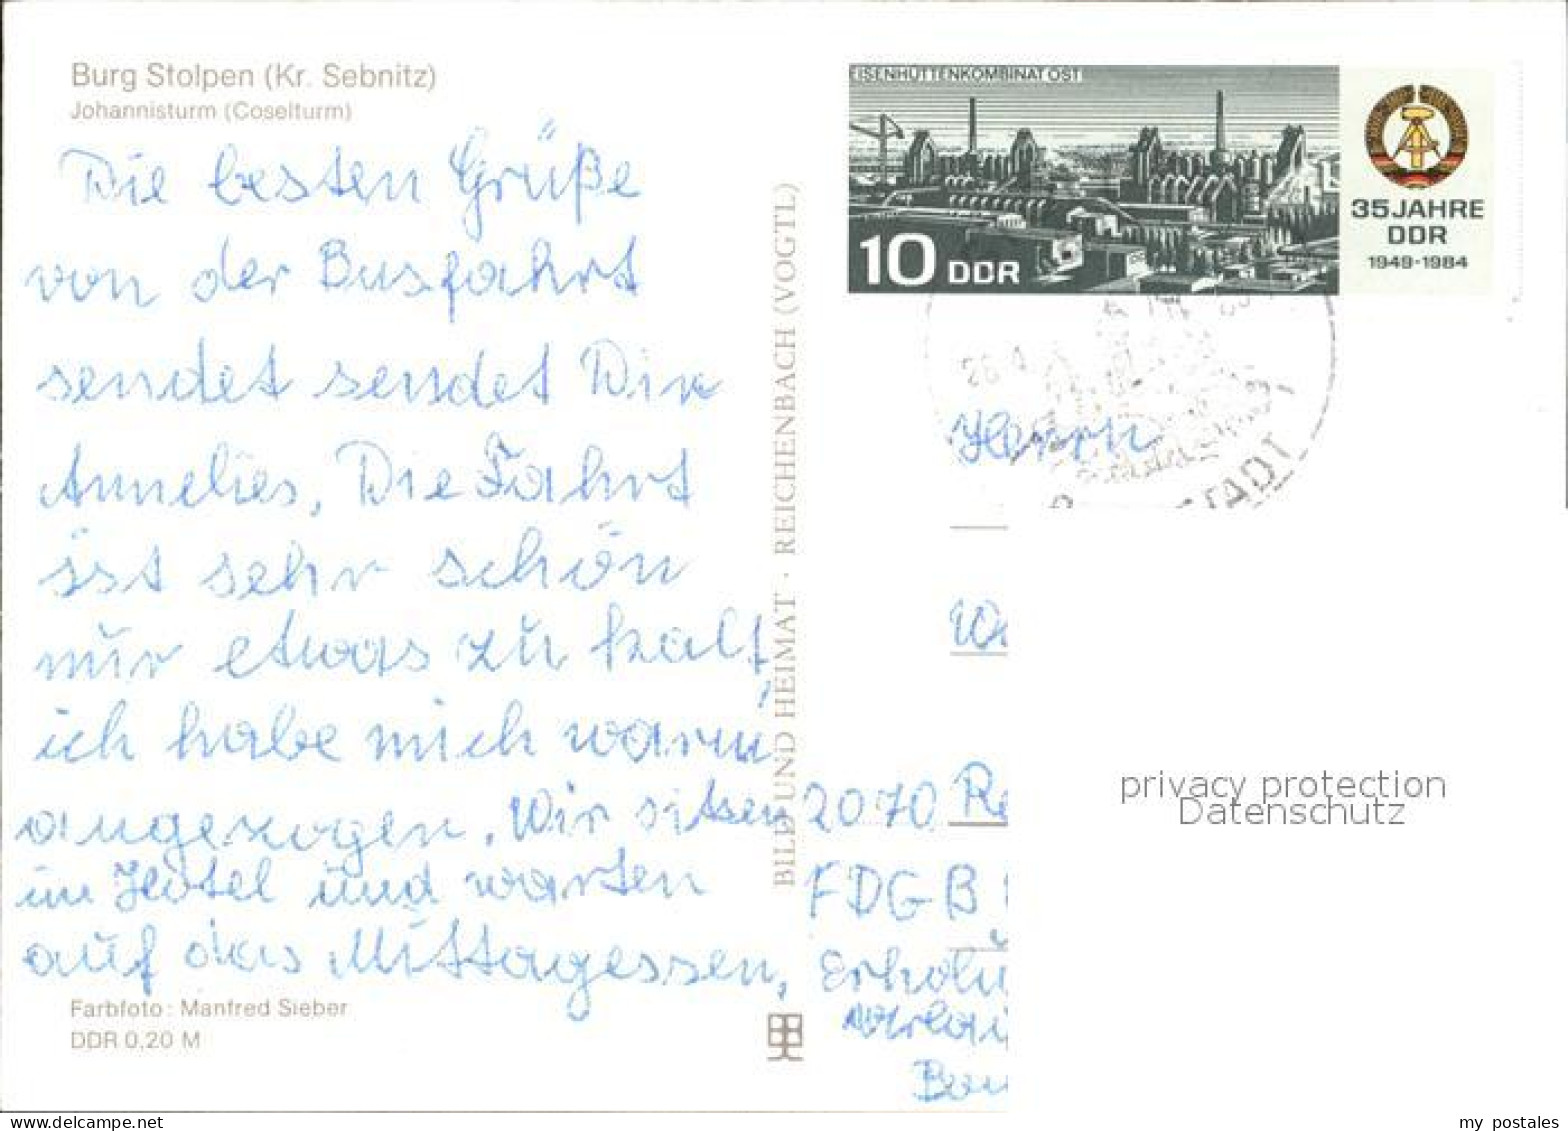 Burg Stolpen (Kr. Sebnitz)
Johannisturm (Coselturm)
Die besten Grüße
von der Busfahrt
sendet sendet Dir
Annelies. Die Fahrt
ist sehr schön
nur etwas zu kalt,
ich habe mich warm
angezogen. Wir sitzen
im Hotel und warten
auf das Mittagessen,
Farbfoto: Manfred Sieber
DDR 0,20 M
BILD UND HEIMAT · REICHENBACH (VOGTL)
EISENHÜTTENKOMBINAT OST
10 DDR
35 JAHRE
DDR
1949-1984
26.4
STADT
Herrn
2070
FDGB
privacy protection
Datenschutz
my postales